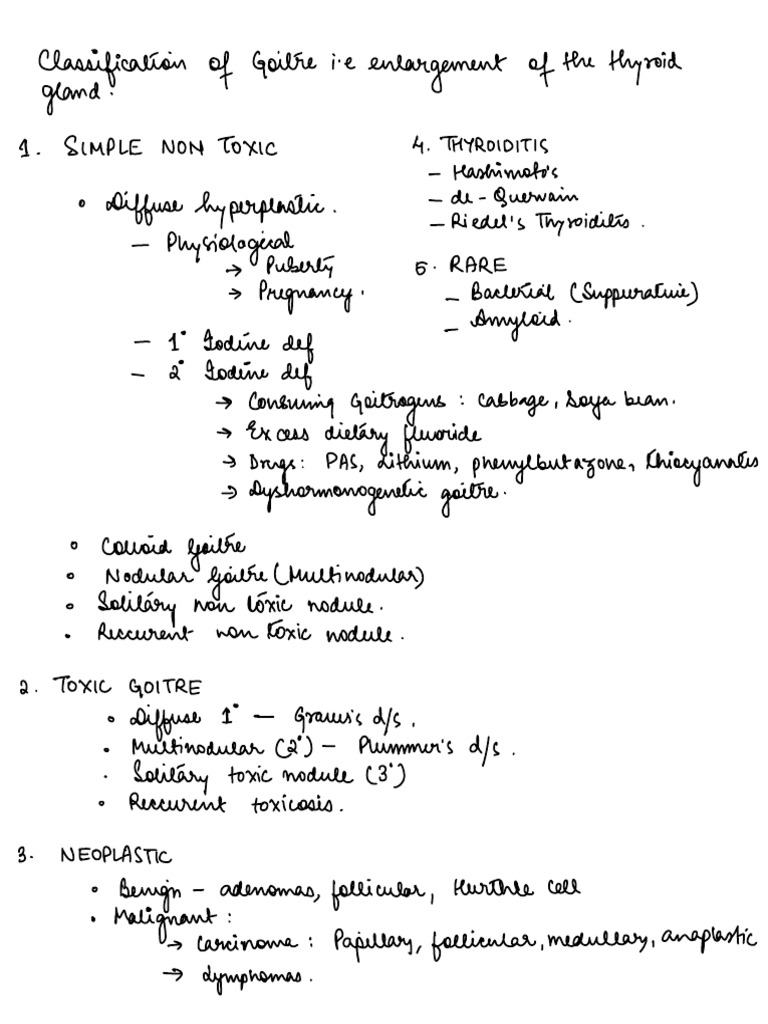 Classification of Goitre i.e enlargement of the thyroid
gland.
1. SIMPLE NON TOXIC
• Diffuse hyperplastic.
– Physiological
→ Puberty
→ Pregnancy.
– 1° Iodine def
– 2° Iodine def
→ Consuming Goitrogens : cabbage, Soya bean.
→ Excess dietary fluoride
→ Drugs: PAS, Lithium, phenylbutazone, Thiocyanates
→ Dyshormonogenetic goitre.
• Colloid Goitre
• Nodular Goitre (Multinodular)
• Solitary non toxic nodule.
• Reccurent non toxic nodule.
2. TOXIC GOITRE
• Diffuse 1° – Graves's d/s.
• Multinodular (2°) – Plummer's d/s.
• Solitary toxic nodule (3°)
• Reccurent toxicosis.
3. NEOPLASTIC
• Benign – adenomas, follicular, Hurthle cell
• Malignant :
→ Carcinoma : Papillary, follicular, medullary, anaplastic
→ Lymphomas.
4. THYROIDITIS
– Hashimoto's
– de-Quervain
– Riedel's Thyroiditis.
5. RARE
– Bacterial (Suppurative)
– Amyloid.